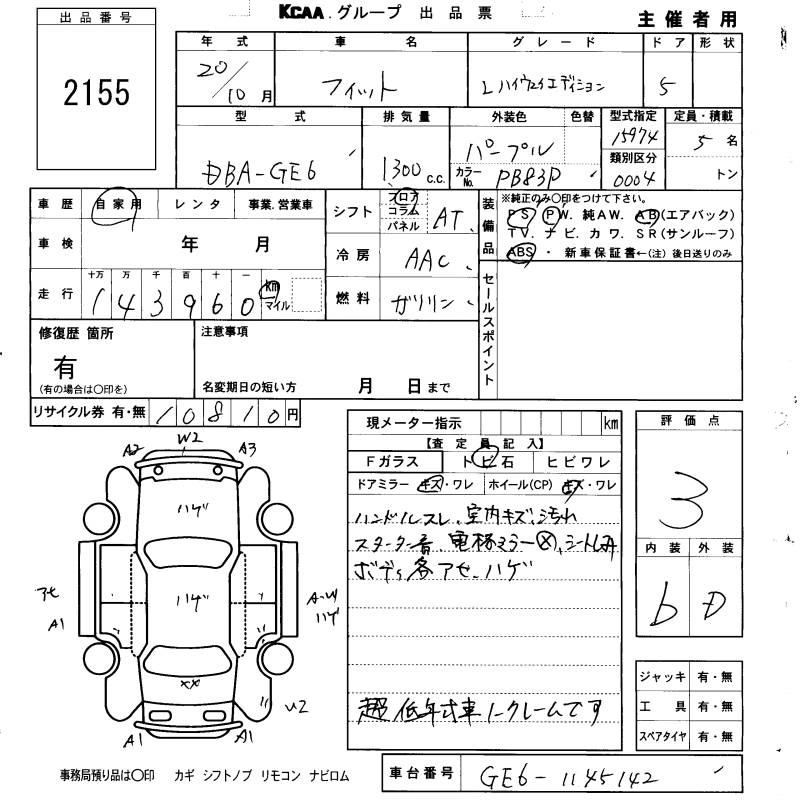 KCAA.グループ 出品票
主催者用
出品番号
2155
年式 車名 グレード ドア 形状
20/10月 フィット Lハイウェイエディション 5
型式 排気量 外装色 色替 型式指定 定員・積載
DBA-GE6 1300 c.c. パープル 15974 5名
カラーNo. PB83P 類別区分 0004 トン
車歴 自家用 レンタ 事業.営業車
車検 年 月
走行 十万 万 千 百 十 一
143960 km マイル
シフト フロア コラム パネル AT
冷房 AAC
燃料 ガソリン
装備品 ※純正のみ〇印をつけて下さい。
PS. PW. 純AW. AB(エアバック)
TV. ナビ. カワ. SR(サンルーフ)
ABS ・ 新車保証書←(注)後日送りのみ
セールスポイント
修復歴 箇所
有
(有の場合は〇印を)
注意事項
名変期日の短い方 月 日まで
リサイクル券 有・無 10810円
現メーター指示 km
【査定員記入】
Fガラス トビ石 ヒビワレ
ドアミラー キズ・ワレ ホイール(CP) キズ・ワレ
ハンドルスレ、室内キズ、汚れ
スターター音、電格ミラー
ボディ各アセ、ハゲ
超低年式車ノークレームです
評価点
3
内装 外装
b D
ジャッキ 有・無
工具 有・無
スペアタイヤ 有・無
A2 W2 A3
ハゲ
アセ
A1
ハゲ
ハゲ
XX
U2
A1 A1
事務局預り品は〇印 カギ シフトノブ リモコン ナビロム
車台番号 GE6-1145142